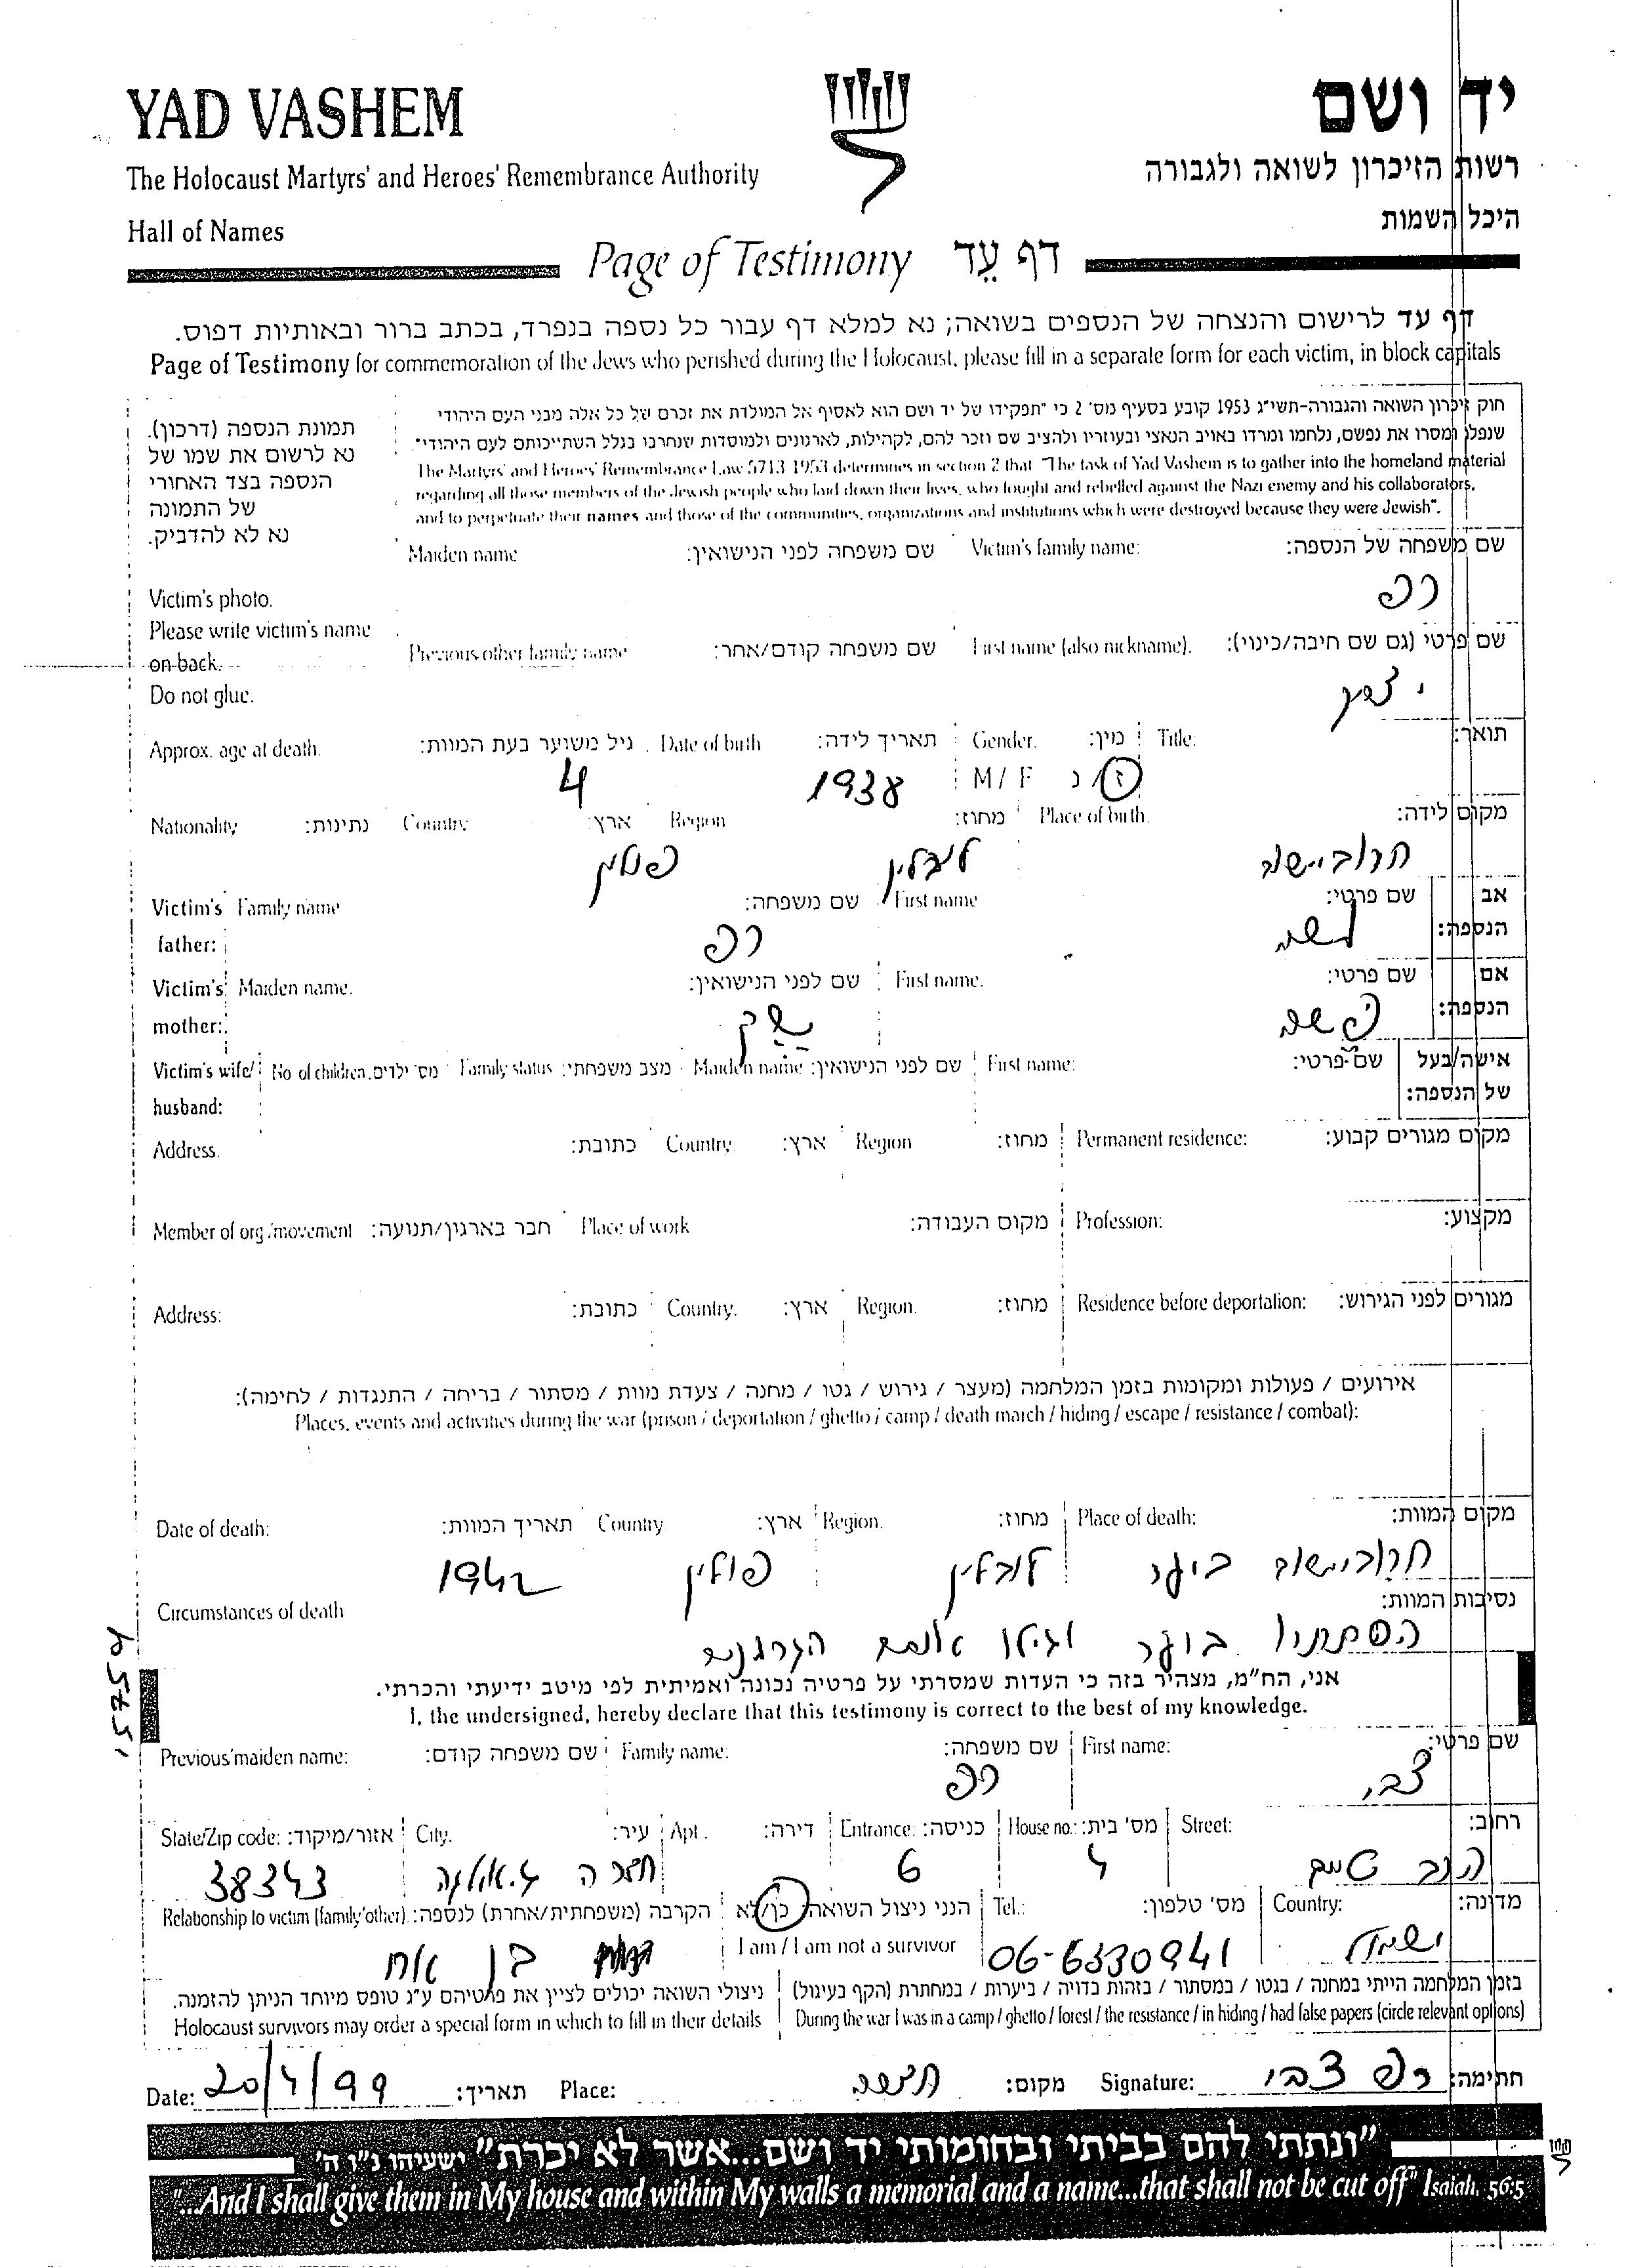 YAD VASHEM
יד ושם
The Holocaust Martyrs' and Heroes' Remembrance Authority
רשות הזיכרון לשואה ולגבורה
Hall of Names
היכל השמות
Page of Testimony דף עֵד
דף עד לרישום והנצחה של הנספים בשואה; נא למלא דף עבור כל נספה בנפרד, בכתב ברור ובאותיות דפוס.
Page of Testimony for commemoration of the Jews who perished during the Holocaust, please fill in a separate form for each victim, in block capitals
חוק זיכרון השואה והגבורה-תשי"ג 1953 קובע בסעיף מס' 2 כי "תפקידו של יד ושם הוא לאסוף אל המולדת את זכרם של כל אלה מבני העם היהודי
שנפלו ומסרו את נפשם, נלחמו ומרדו באויב הנאצי ובעוזריו ולהציב שם וזכר להם, לקהילות, לארגונים ולמוסדות שנחרבו בגלל השתייכותם לעם היהודי".
The Martyrs' and Heroes' Remembrance Law 5713 1953 determines in section 2 that "The task of Yad Vashem is to gather into the homeland material
regarding all those members of the Jewish people who laid down their lives, who fought and rebelled against the Nazi enemy and his collaborators,
and to perpetuate their names and those of the communities, organizations and institutions which were destroyed because they were Jewish".
תמונת הנספה (דרכון).
נא לרשום את שמו של
הנספה בצד האחורי
של התמונה
נא לא להדביק.
Victim's photo.
Please write victim's name
on back.
Do not glue.
שם משפחה של הנספה: Victim's family name: שם משפחה לפני הנישואין: Maiden name
רפ
שם פרטי (גם שם חיבה/כינוי): First name (also nickname). שם משפחה קודם/אחר: Previous other family name
יצחק
תואר: Title: מין: Gender. תאריך לידה: Date of birth גיל משוער בעת המוות: Approx. age at death.
ז/נ M / F 1938 4
מקום לידה: Place of birth. מחוז: Region ארץ: Country נתינות: Nationality
חרובישוב לובלין פולין
אב הנספה: שם פרטי: First name שם משפחה: Family name Victim's father:
משה רפ
אם הנספה: שם פרטי: First name. שם לפני הנישואין: Maiden name. Victim's mother:
אישה/בעל של הנספה: שם פרטי: First name: שם לפני הנישואין: Maiden name מצב משפחתי: Family status מס' ילדים. No of children. Victim's wife/ husband:
מקום מגורים קבוע: Permanent residence: מחוז: Region ארץ: Country. כתובת: Address.
מקצוע: Profession: מקום העבודה: Place of work חבר בארגון/תנועה: Member of org./movement
מגורים לפני הגירוש: Residence before deportation: מחוז: Region. ארץ: Country. כתובת: Address:
אירועים / פעולות ומקומות בזמן המלחמה (מעצר / גירוש / גטו / מחנה / צעדת מוות / מסתור / בריחה / התנגדות / לחימה):
Places, events and activities during the war (prison / deportation / ghetto / camp / death march / hiding / escape / resistance / combat):
מקום המוות: Place of death: מחוז: Region. ארץ: Country. תאריך המוות: Date of death:
חרובישוב לובלין פולין 1942
נסיבות המוות: Circumstances of death
הסתתרו וגילו אותם
אני, הח"מ, מצהיר בזה כי העדות שמסרתי על פרטיה נכונה ואמיתית לפי מיטב ידיעתי והכרתי.
I, the undersigned, hereby declare that this testimony is correct to the best of my knowledge.
שם פרטי: First name: שם משפחה: Family name: שם משפחה קודם: Previous/maiden name:
צבי רפ
רחוב: Street: מס' בית: House no.: כניסה: Entrance: דירה: Apt.. עיר: City. אזור/מיקוד: State/Zip code:
4 6 חדרה 38343
מדינה: Country: מס' טלפון: Tel.: הנני ניצול השואה: כן/לא I am / I am not a survivor הקרבה (משפחתית/אחרת) לנספה: Relationship to victim (family/other)
ישראל 06-6330941 בן אח
בזמן המלחמה הייתי במחנה / בגטו / במסתור / בזהות בדויה / ביערות / במחתרת (הקף בעיגול)
During the war I was in a camp / ghetto / forest / the resistance / in hiding / had false papers (circle relevant options)
ניצולי השואה יכולים לציין את פרטיהם ע"ג טופס מיוחד הניתן להזמנה.
Holocaust survivors may order a special form in which to fill in their details
חתימה: רפ צבי Signature: מקום: חדרה Place: תאריך: 20/4/99 Date:
"ונתתי להם בביתי ובחומותי יד ושם...אשר לא יכרת" ישעיהו נ"ו ה'
"...And I shall give them in My house and within My walls a memorial and a name...that shall not be cut off" Isaiah, 56:5